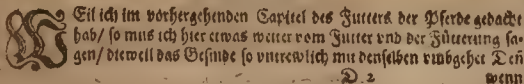 WEil ich im vorhergehenden Capittel des Futters der Pferde gedacht
hab/ so mus ich hier etwas weiter vom Futter vnd der Fütterung sa-
gen/ dieweil das Gesinde so vntrewlich mit denselben vmbgehet Den
D 2 wenn